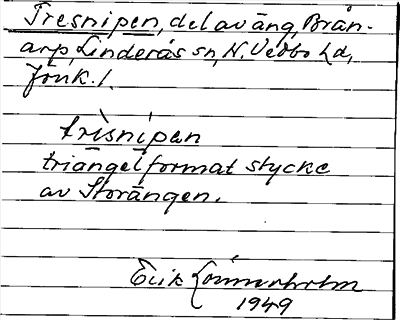 Tresnipen, del av äng, Brån-
arp, Linderås sn, N. Vedbo hd,
Jönk. l.
trìsnípan
triangelformat stycke
av Storängen.
Erik
1949